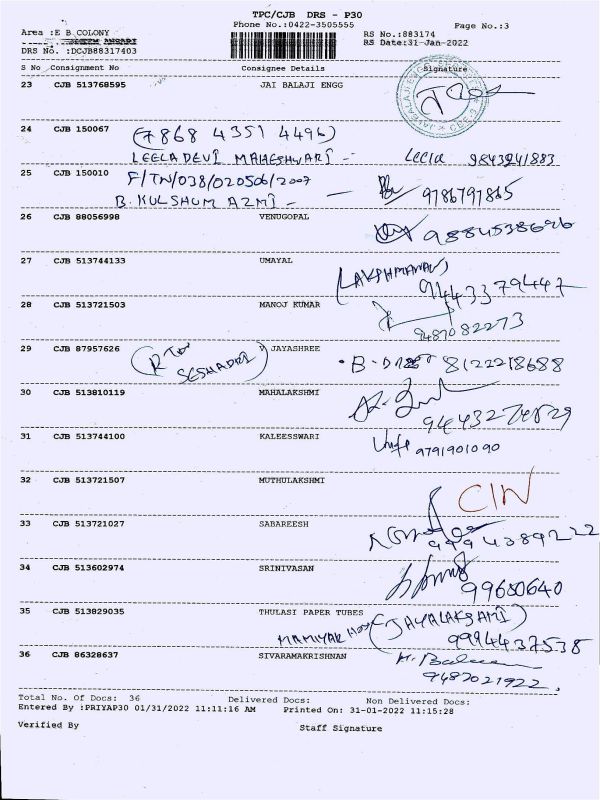 TPC/CJB DRS - P30
Phone No.:0422-3505555 Page No.:3
Area :E B COLONY RS No.:883174
DRS No. :DCJB88317403 RS Date:31-Jan-2022
S No Consignment No Consignee Details Signature
23 CJB 513768595 JAI BALAJI ENGG
24 CJB 150067 (7868 4351 4496)
LEELADEVI MAHESHWARI - Leela 9843241883
25 CJB 150010 F/TN/038/020506/2007
B. KULSHUM AZMI - 9786797865
26 CJB 88056998 VENUGOPAL
27 CJB 513744133 UMAYAL
(LAKSHMANAN) 9443379447
28 CJB 513721503 MANOJ KUMAR
9487082273
29 CJB 87957626 (RTO SESHADRI) V JAYASHREE
8122218688
30 CJB 513810119 MAHALAKSHMI
31 CJB 513744100 KALEESSWARI
9791901090
32 CJB 513721507 MUTHULAKSHMI
CIN
33 CJB 513721027 SABAREESH
9994389222
34 CJB 513602974 SRINIVASAN
99650640
35 CJB 513829035 THULASI PAPER TUBES
(JAYALAKSAMI)
9994437538
36 CJB 86328637 SIVARAMAKRISHNAN
9487021922.
Total No. Of Docs: 36 Delivered Docs: Non Delivered Docs:
Entered By :PRIYAP30 01/31/2022 11:11:16 AM Printed On: 31-01-2022 11:15:28
Verified By Staff Signature